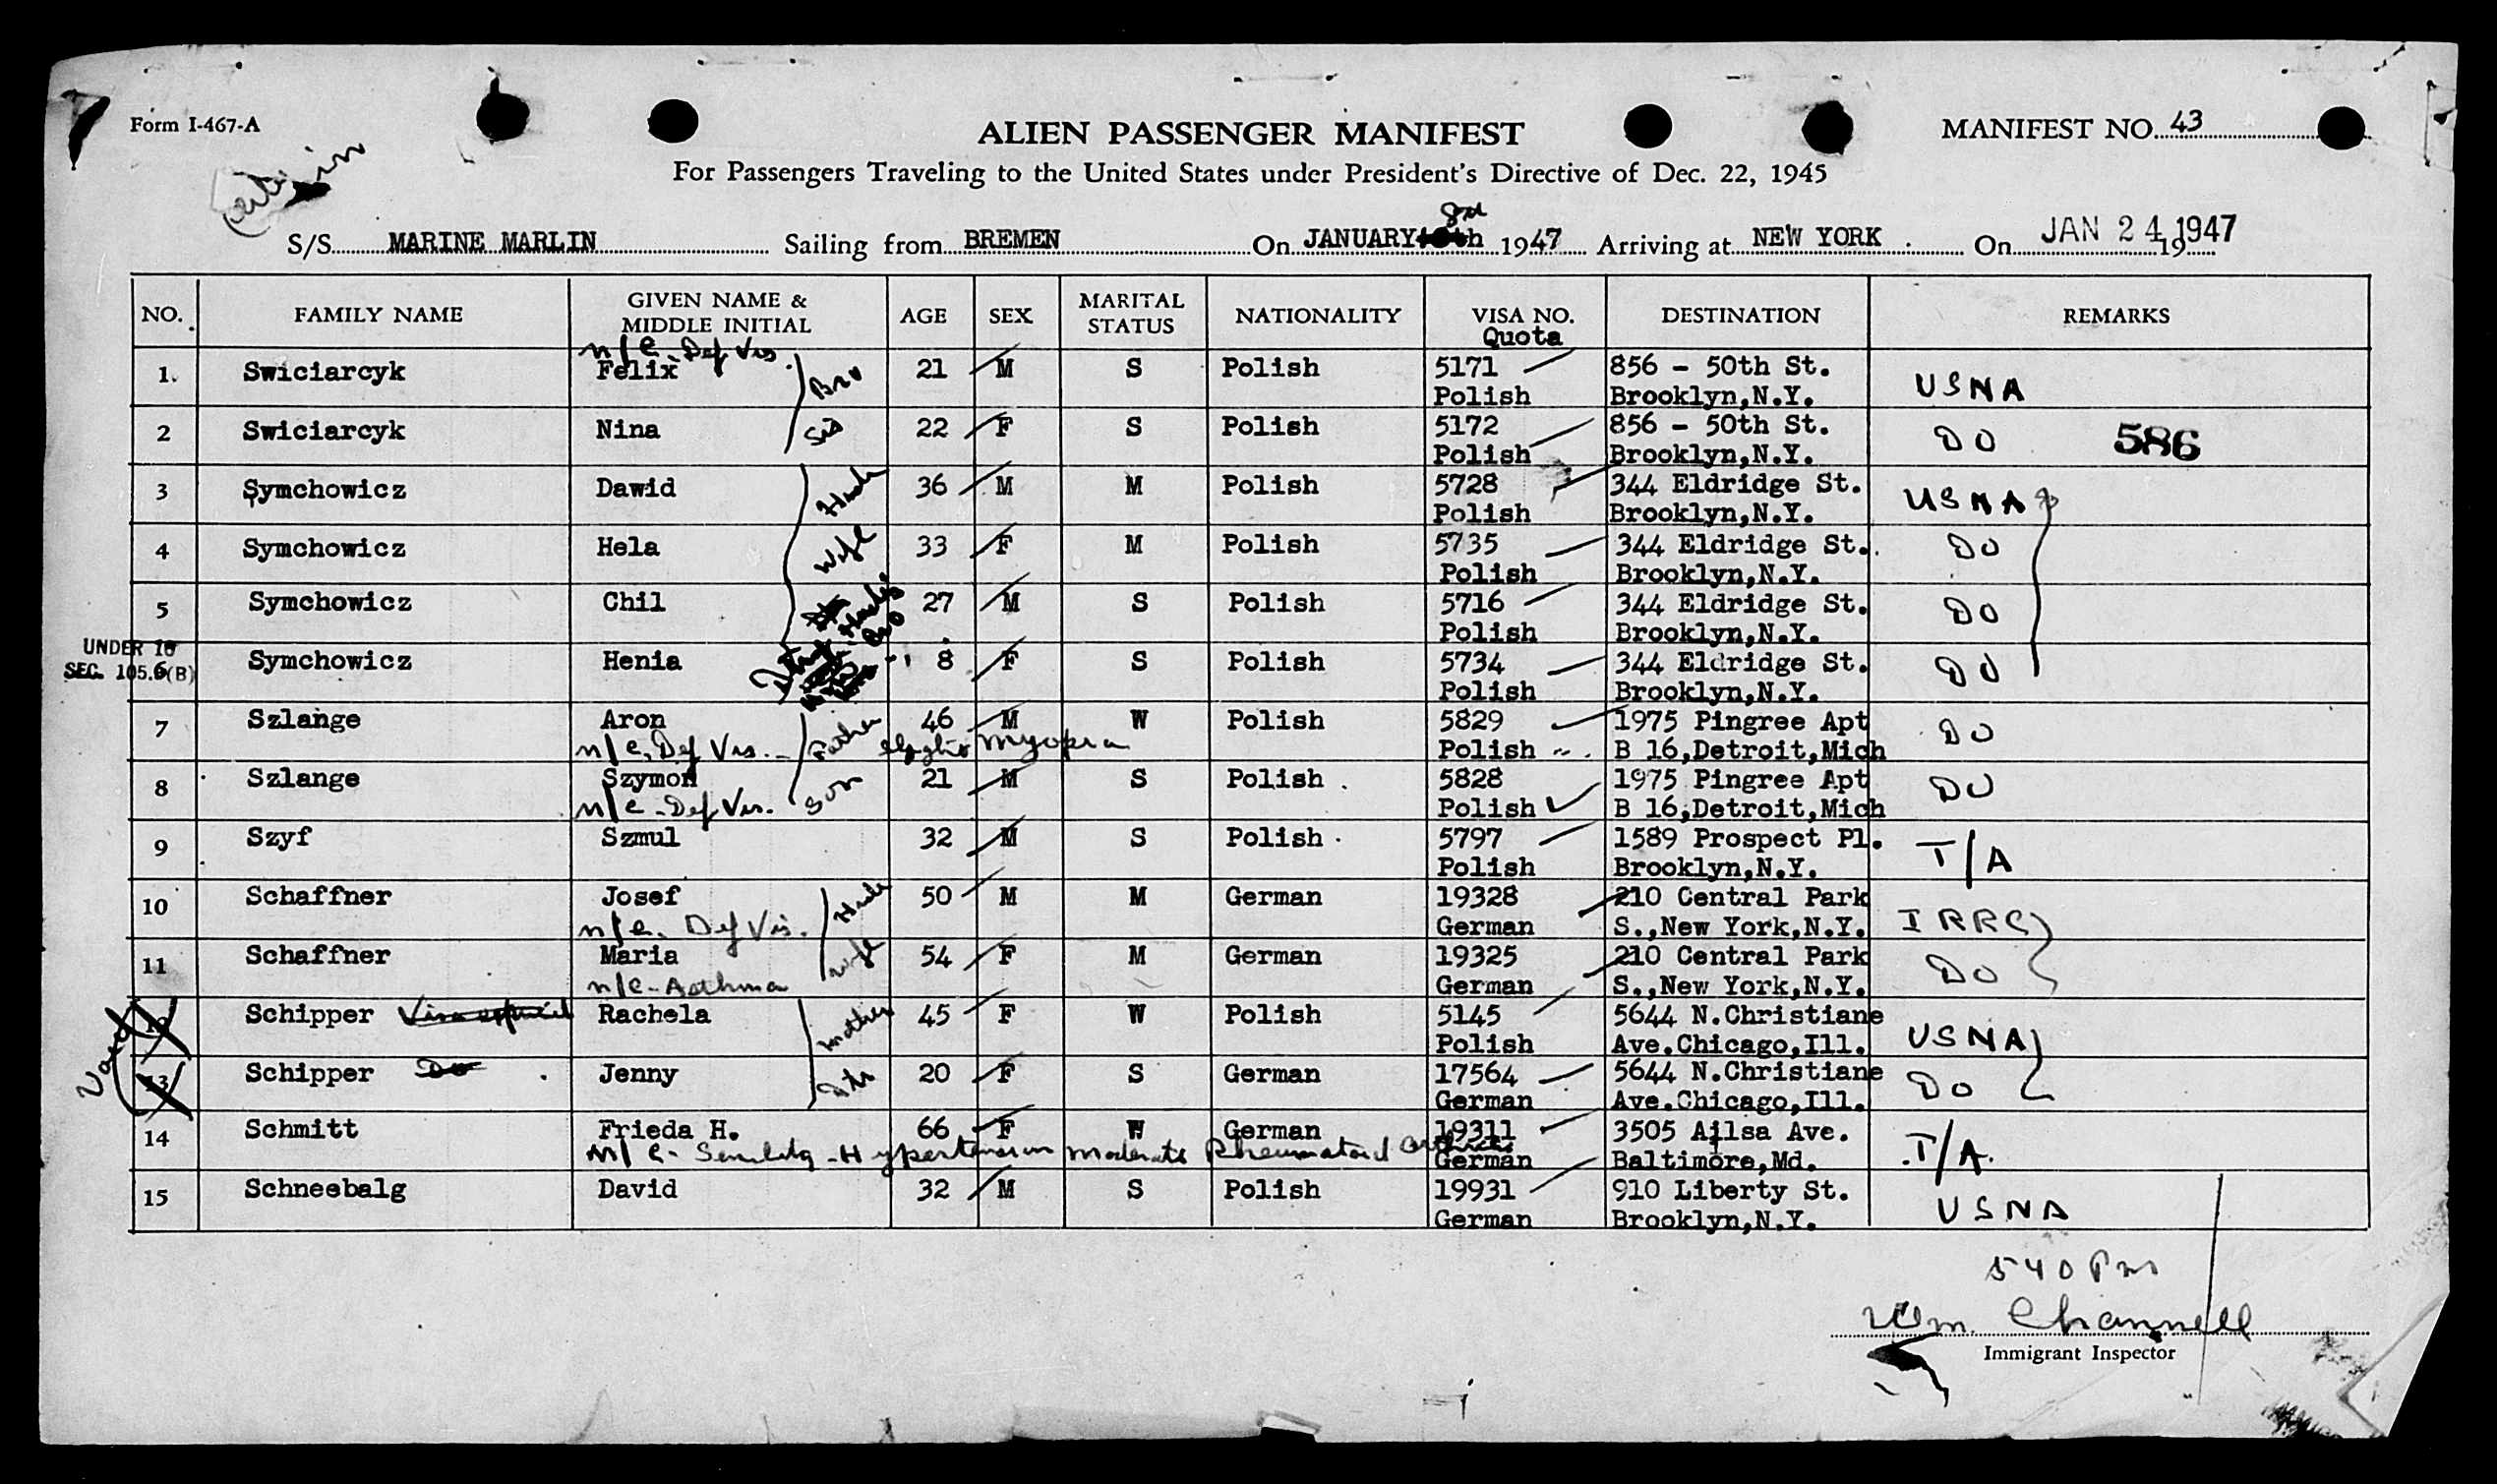 Form I-467-A
ALIEN PASSENGER MANIFEST
MANIFEST NO. 43
For Passengers Traveling to the United States under President's Directive of Dec. 22, 1945
8rd
S/S MARINE MARLIN Sailing from BREMEN On JANUARY 1947 Arriving at NEW YORK On JAN 24 1947
NO. FAMILY NAME GIVEN NAME & MIDDLE INITIAL AGE SEX MARITAL STATUS NATIONALITY VISA NO. Quota DESTINATION REMARKS
n/c Def Vis.
1. Swiciarcyk Felix Bro 21 M S Polish 5171 856 - 50th St. USNA
Polish Brooklyn,N.Y.
2 Swiciarcyk Nina Sis 22 F S Polish 5172 856 - 50th St. DO 586
Polish Brooklyn,N.Y.
3 Symchowicz Dawid Husb 36 M M Polish 5728 344 Eldridge St. USNA
Polish Brooklyn,N.Y.
4 Symchowicz Hela Wife 33 F M Polish 5735 344 Eldridge St. DO
Polish Brooklyn,N.Y.
5 Symchowicz Chil Husb's Bro 27 M S Polish 5716 344 Eldridge St. DO
Polish Brooklyn,N.Y.
UNDER 16
SEC. 105.6(B)
Symchowicz Henia 8 F S Polish 5734 344 Eldridge St. DO
Polish Brooklyn,N.Y.
7 Szlange Aron Father 46 M W Polish 5829 1975 Pingree Apt DO
n/c. Def Vis. - Myopia Polish B 16,Detroit,Mich
8 Szlange Szymon Son 21 M S Polish 5828 1975 Pingree Apt DO
n/c - Def Vis. Polish B 16,Detroit,Mich
9 Szyf Szmul 32 M S Polish 5797 1589 Prospect Pl. T/A
Polish Brooklyn,N.Y.
10 Schaffner Josef Husb 50 M M German 19328 210 Central Park IRRC
n/c. Def Vis. German S.,New York,N.Y.
11 Schaffner Maria Wife 54 F M German 19325 210 Central Park DO
n/c - Asthma German S.,New York,N.Y.
12 Schipper Rachela Mother 45 F W Polish 5145 5644 N.Christiane USNA
Polish Ave.Chicago,Ill.
13 Schipper Do Jenny Dtr 20 F S German 17564 5644 N.Christiane DO
German Ave.Chicago,Ill.
14 Schmitt Frieda H. 66 F W German 19311 3505 Ailsa Ave. T/A.
n/c - Senility - Hypertension Moderate Rheumatoid Arthritis German Baltimore,Md.
15 Schneebalg David 32 M S Polish 19931 910 Liberty St. USNA
German Brooklyn,N.Y.
540 Pm
Wm. Channell
Immigrant Inspector